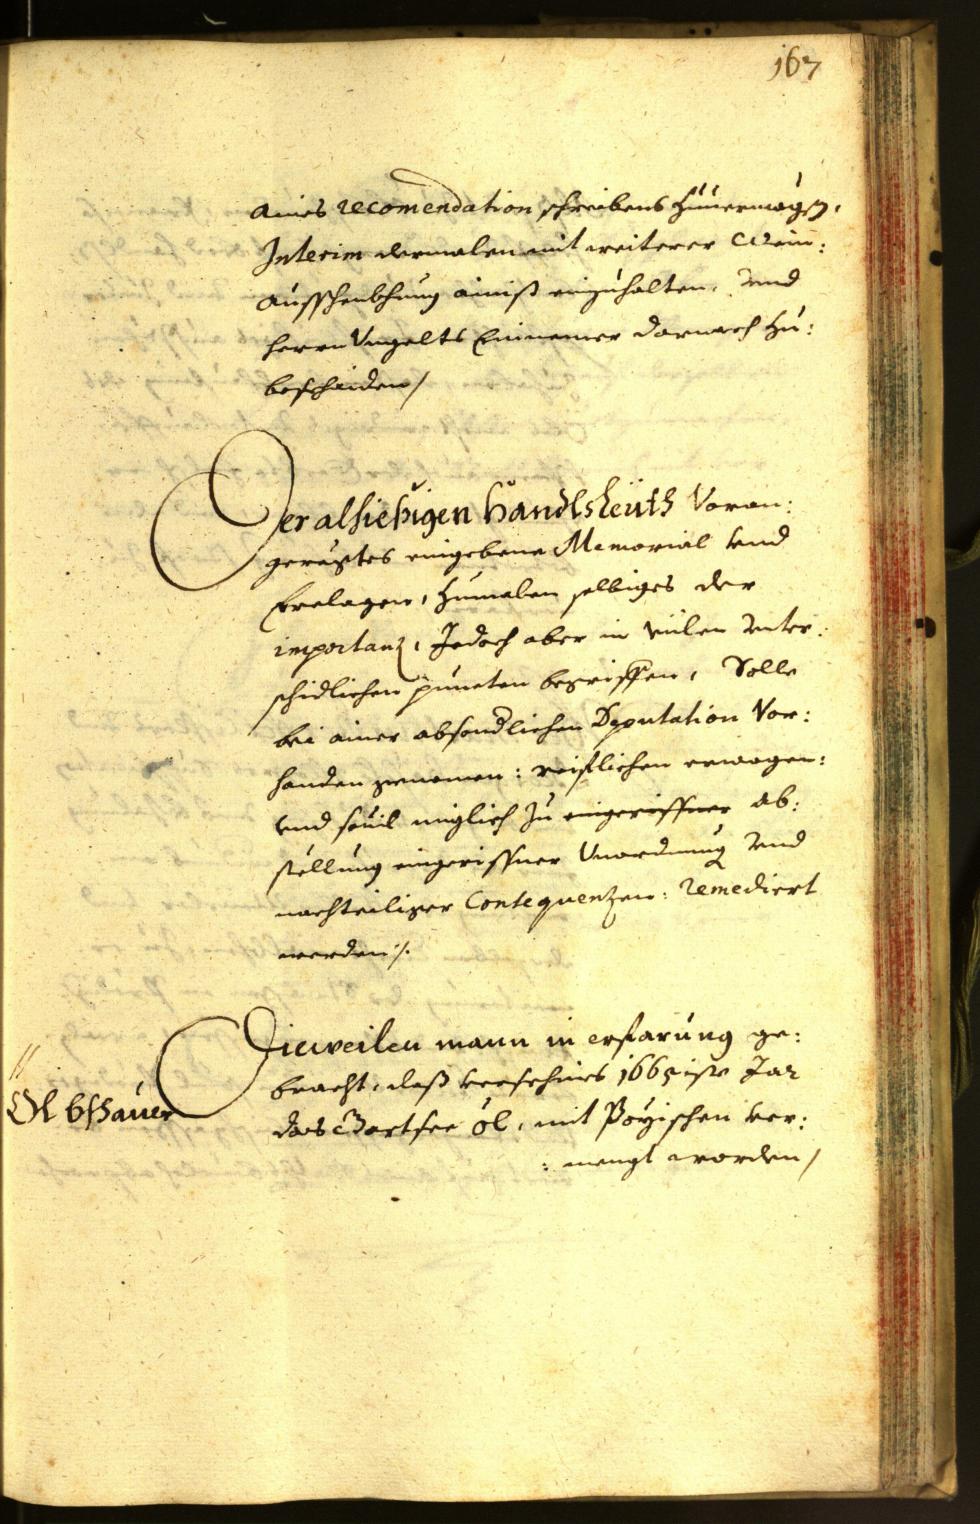 167
aines recomendation schreibens zuuermögen,
Interim dermalen mit weiterer Wein:
ausschenkhung ainiß einzuhalten, vnd
herrn Vngelts Einnemer darnach zu:
bescheiden /
Der alhiesigen Handlsleüth Voran:
geregtes eingebene Memorial vnd
beylagen, zumalen selbiges der
importanz, Jedoch aber in vilen vnter:
schidlichen puncten begriffen, Solle
bei ainer absondlichen Deputation Vor:
handen genomen: reiflichen erwogen:
vnd souil miglich zu eingerissner ab:
stellung eingerissner Vnordnung vnd
nachteiliger Consequenzen: remediert
werden /.
Dieweilen mann in erfarung ge:
Öl bschauer
bracht, daß verschines 1665iste Jar
das Gartsee öl, mit Poyischen ver:
: mengt worden /